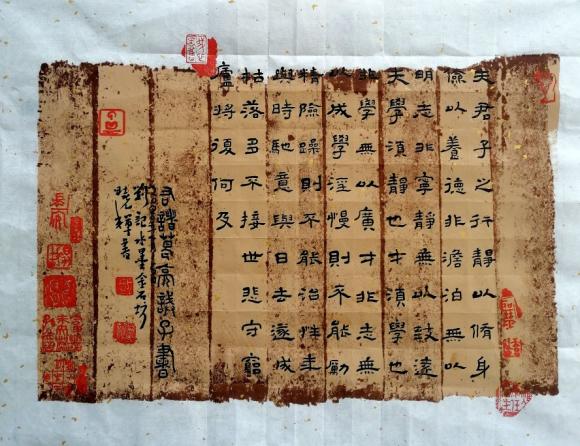 夫君子之行靜以脩身
儉以養德非澹泊無以
明志非寧靜無以致遠
夫學須靜也才須學也
非學無以廣才非志無
以成學淫慢則不能勵
精險躁則不能治性年
與時馳意與日去遂成
枯落多不接世悲守窮
廬將復何及
右諸葛亮誡子書
水墨金石坊